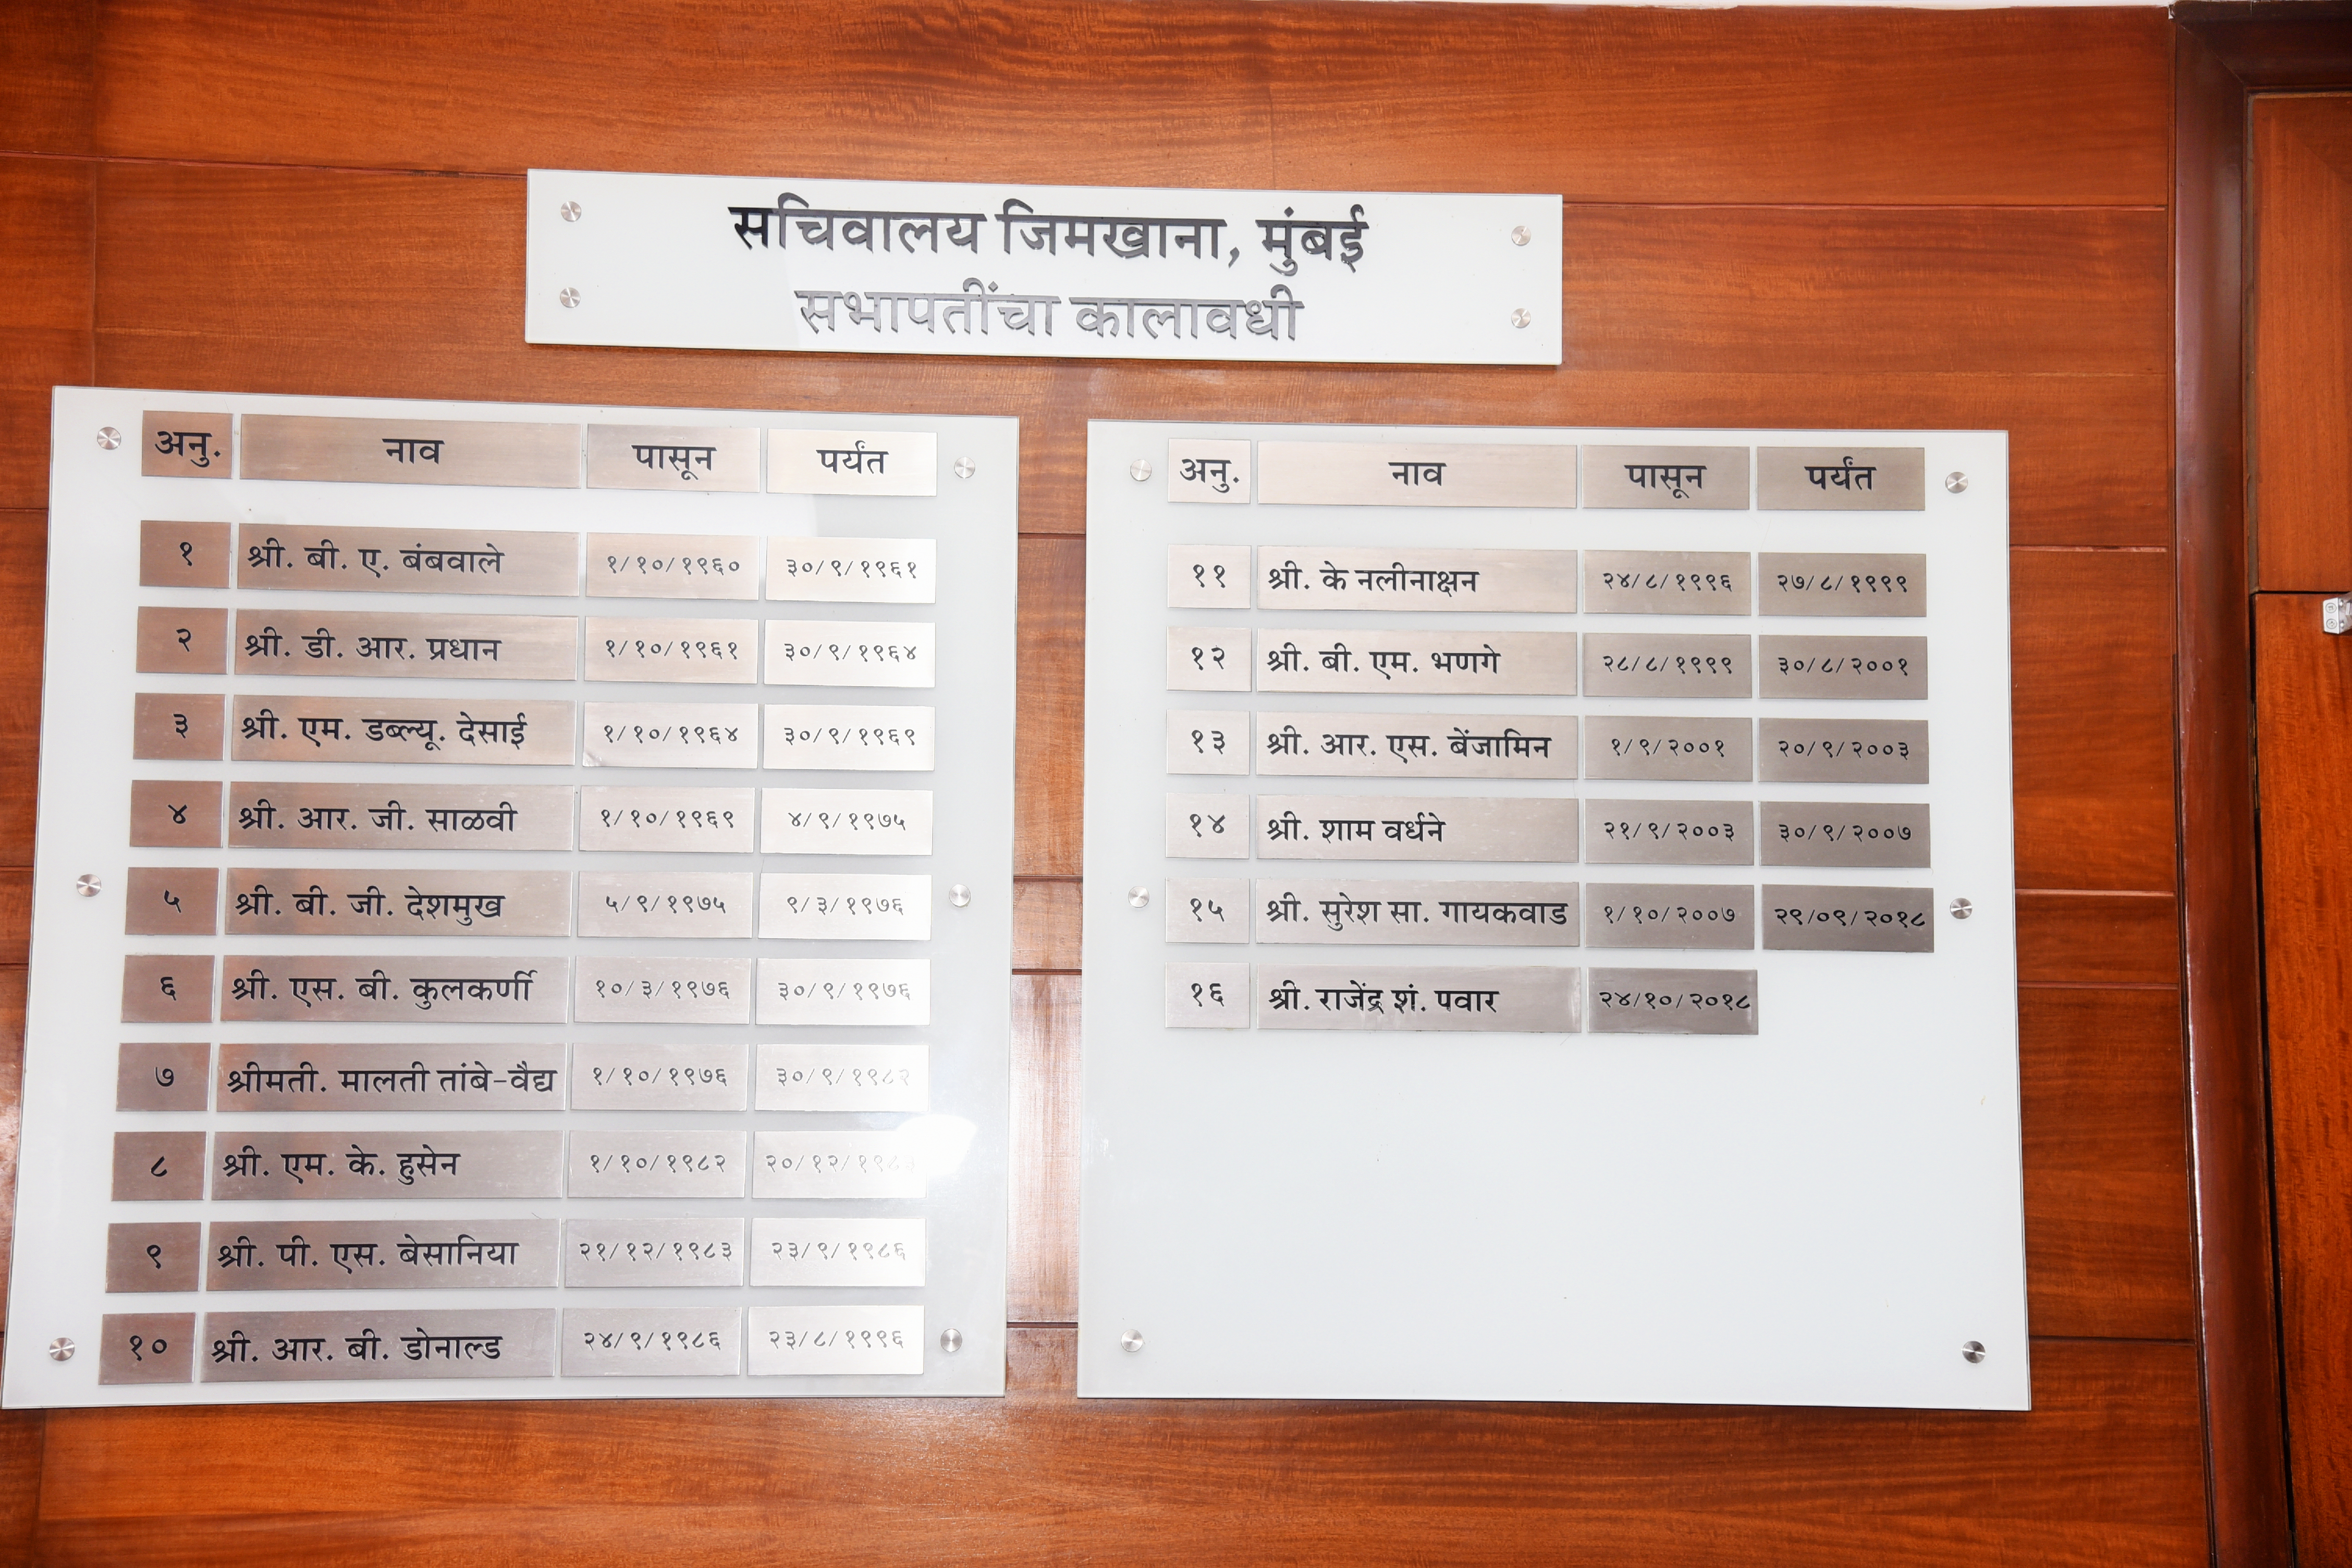 सचिवालय जिमखाना, मुंबई
सभापतींचा कालावधी
अनु. नाव पासून पर्यंत
१ श्री. बी. ए. बंबवाले १/१०/१९६० ३०/९/१९६१
२ श्री. डी. आर. प्रधान १/१०/१९६१ ३०/९/१९६४
३ श्री. एम. डब्ल्यू. देसाई १/१०/१९६४ ३०/९/१९६९
४ श्री. आर. जी. साळवी १/१०/१९६९ ४/९/१९७५
५ श्री. बी. जी. देशमुख ५/९/१९७५ ९/३/१९७६
६ श्री. एस. बी. कुलकर्णी १०/३/१९७६ ३०/९/१९७६
७ श्रीमती. मालती तांबे-वैद्य १/१०/१९७६ ३०/९/१९८२
८ श्री. एम. के. हुसेन १/१०/१९८२
९ श्री. पी. एस. बेसानिया २१/१२/१९८३ २३/९/१९८६
१० श्री. आर. बी. डोनाल्ड २४/९/१९८६ २३/८/१९९६
अनु. नाव पासून पर्यंत
११ श्री. के नलीनाक्षन २४/८/१९९६ २७/८/१९९९
१२ श्री. बी. एम. भणगे २८/८/१९९९ ३०/८/२००१
१३ श्री. आर. एस. बेंजामिन १/९/२००१ २०/९/२००३
१४ श्री. शाम वर्धने २१/९/२००३ ३०/९/२००७
१५ श्री. सुरेश सा. गायकवाड १/१०/२००७ २९/०९/२०१८
१६ श्री. राजेंद्र शं. पवार २४/१०/२०१८